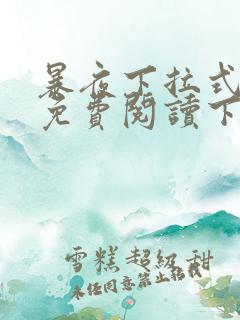 暴夜下拉式
免費閱讀下
雪糕超級甜
未经同意禁止转载